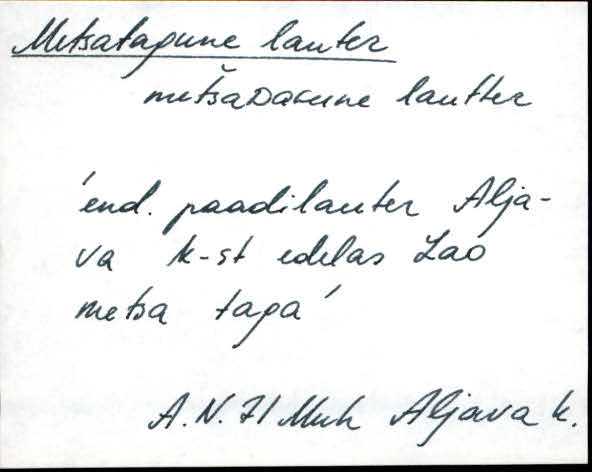 Metsatagune lauter
metšaDaGune lautter
'end. paadilauter Alja-
va k-st edelas Lao
metsa taga'
A.N. 71 Muh Aljava k.